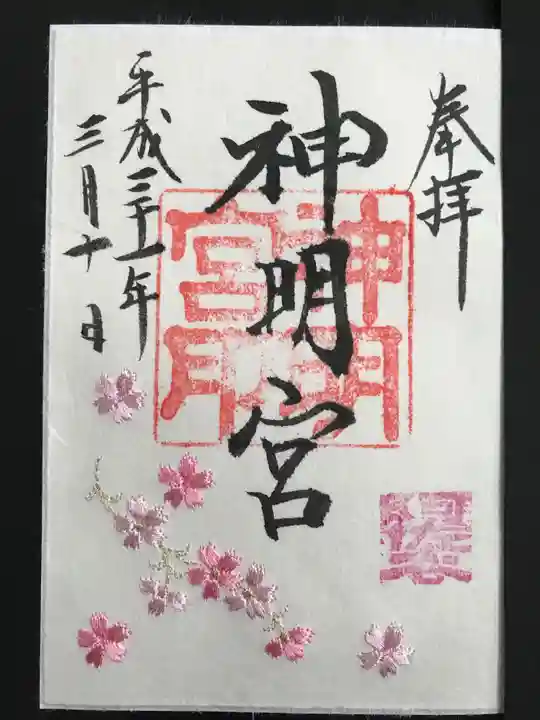 奉拝
神明宮
平成三十一年
三月十日